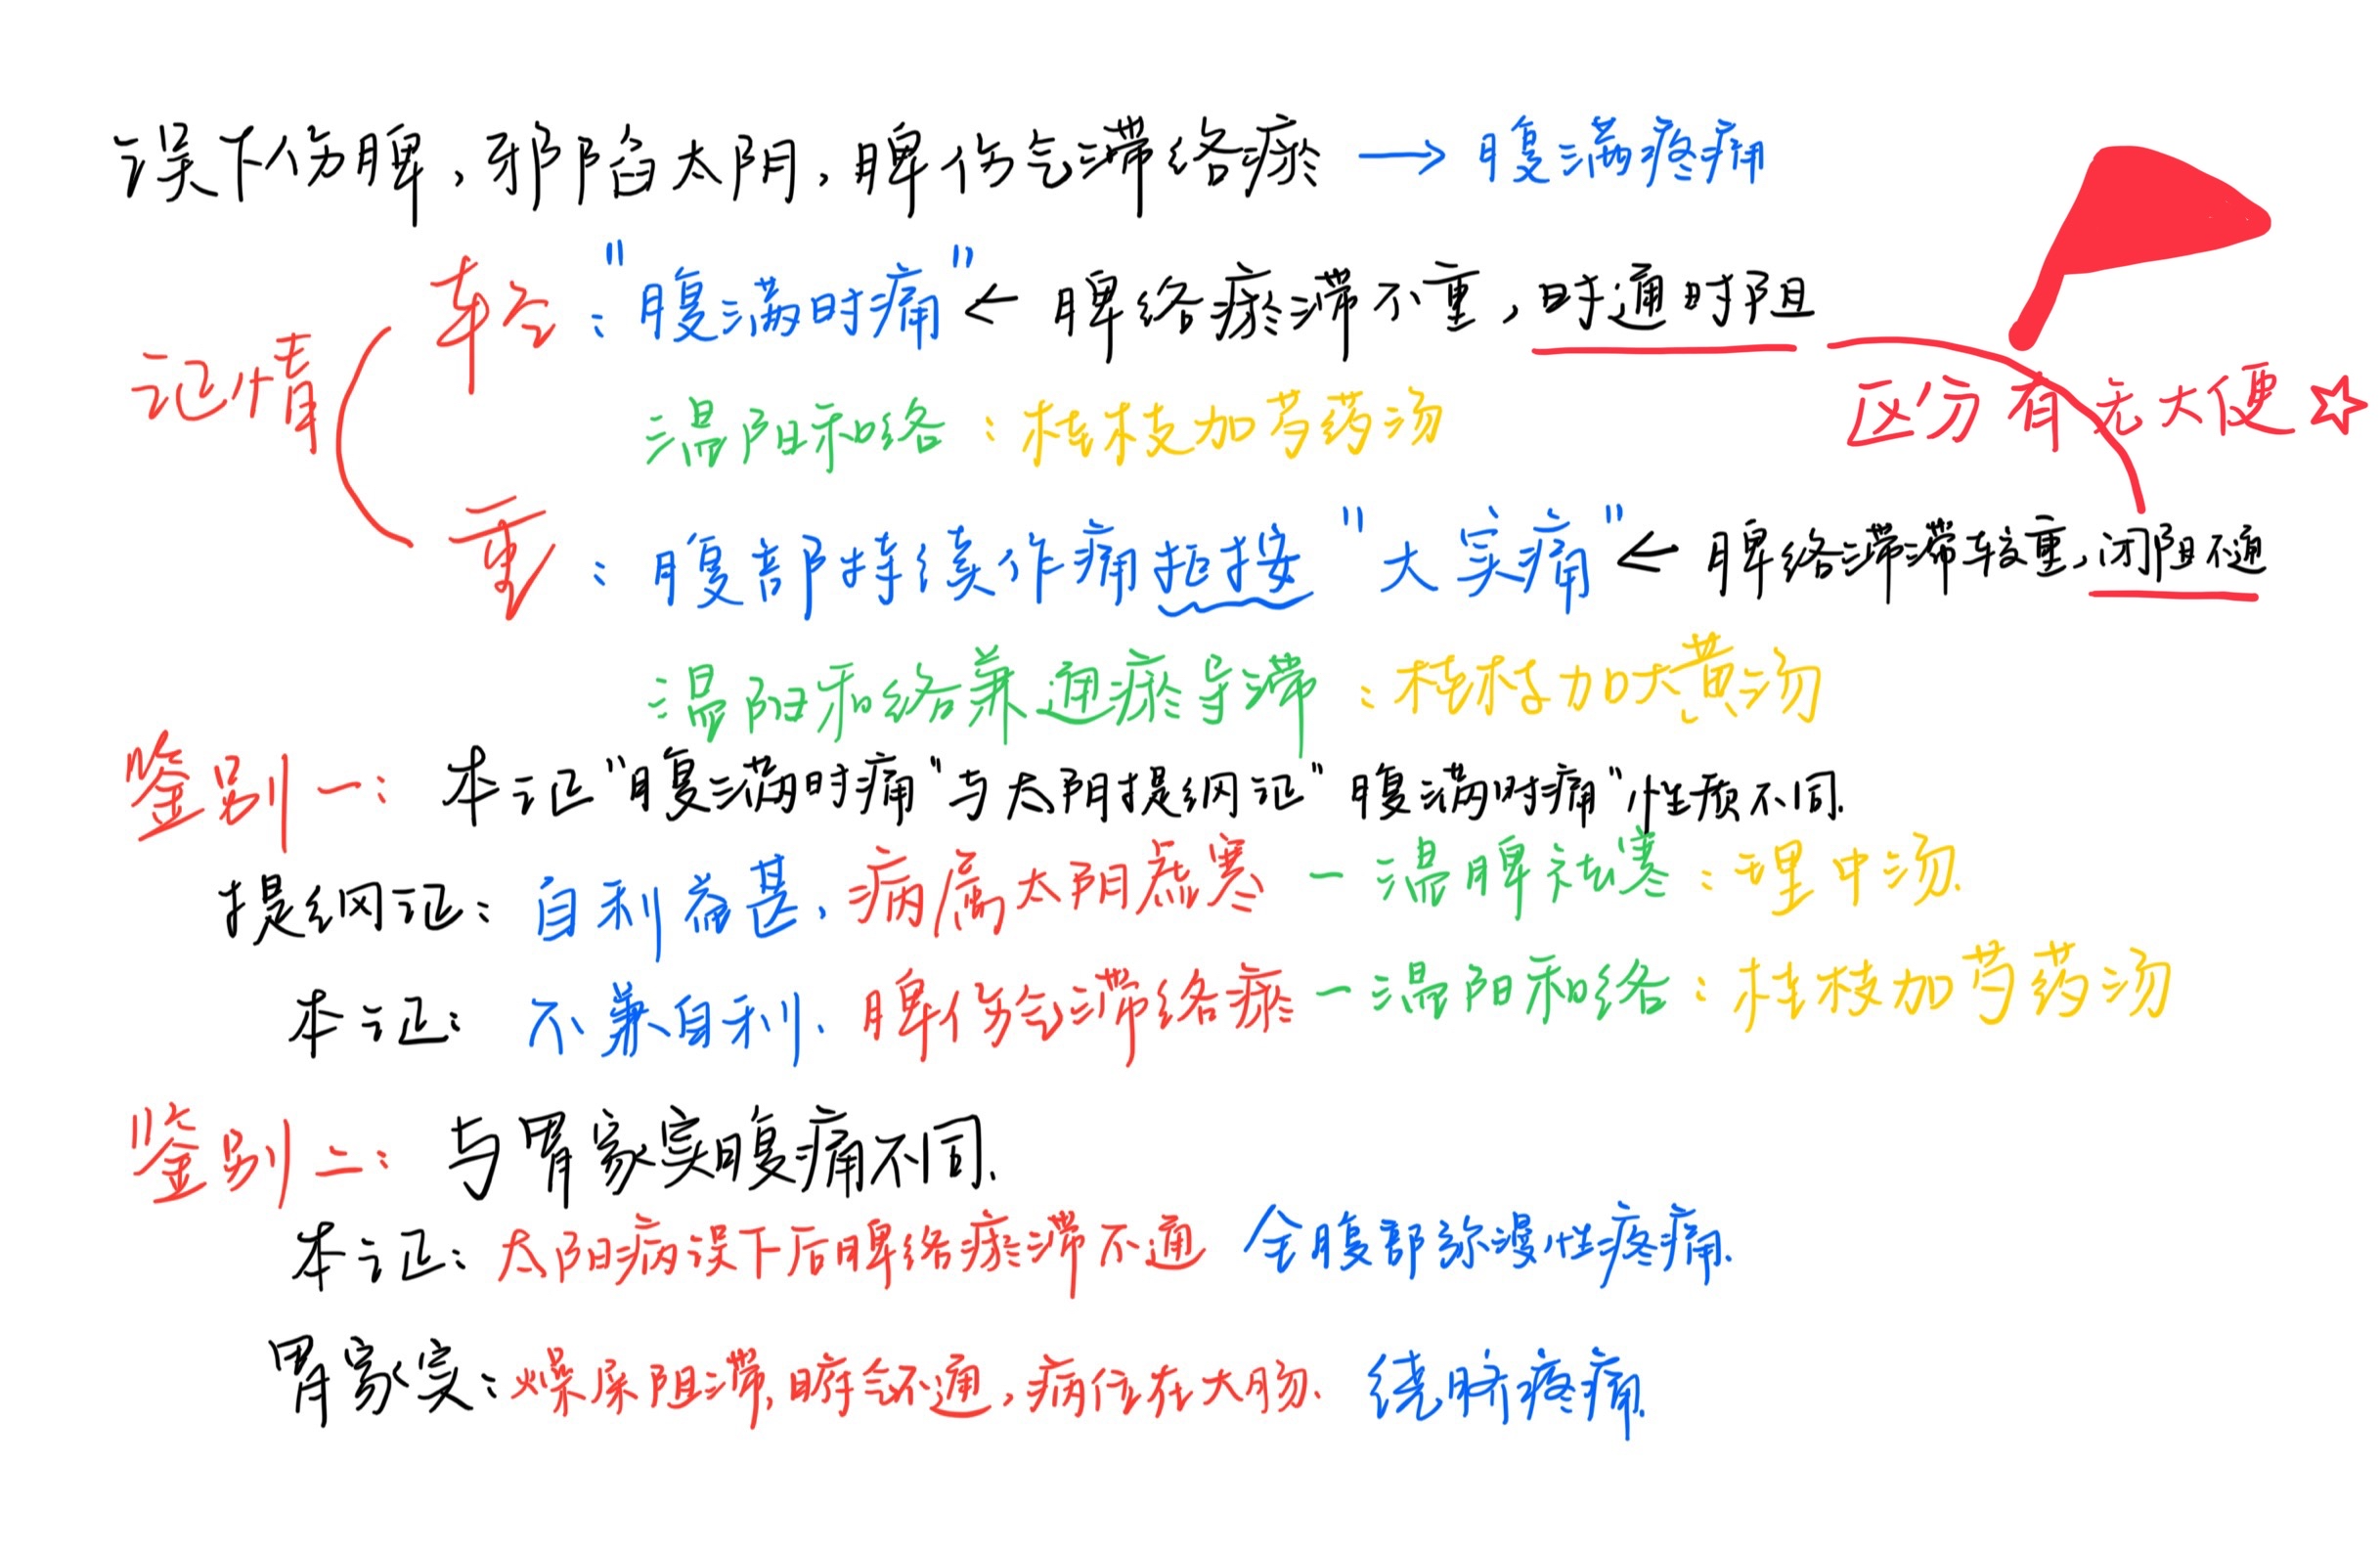 误下伤脾，邪陷太阴，脾伤气滞络瘀 → 腹满疼痛
证情
轻："腹满时痛" ← 脾络瘀滞不重，时通时阻
区分有无大便☆
温阳和络：桂枝加芍药汤
重：腹部持续作痛拒按 "大实痛" ← 脾络滞滞较重，闭阻不通
温阳和络兼通瘀导滞：桂枝加大黄汤
鉴别一：本证"腹满时痛"与太阴提纲证"腹满时痛"性质不同.
提纲证：自利益甚，病属太阴虚寒 — 温脾祛寒：理中汤.
本证：不兼自利、脾伤气滞络瘀 — 温阳和络：桂枝加芍药汤
鉴别二：与胃家实腹痛不同.
本证：太阳病误下后脾络瘀滞不通 全腹部弥漫性疼痛.
胃家实：燥屎阻滞，腑气不通，病位在大肠、绕脐疼痛.